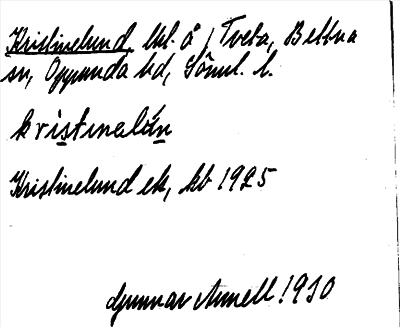 Kristinelund, lht. å / Tveta, Bettna
sn, Oppunda hd, Söml. l.
kristinelún
Kristinelund ek, kb 1925
Gunnar Annell 1930